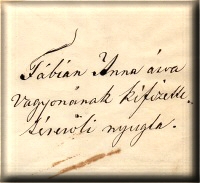 Fábián Anna árva
vagyonának kifizetté-
séről nyugta.